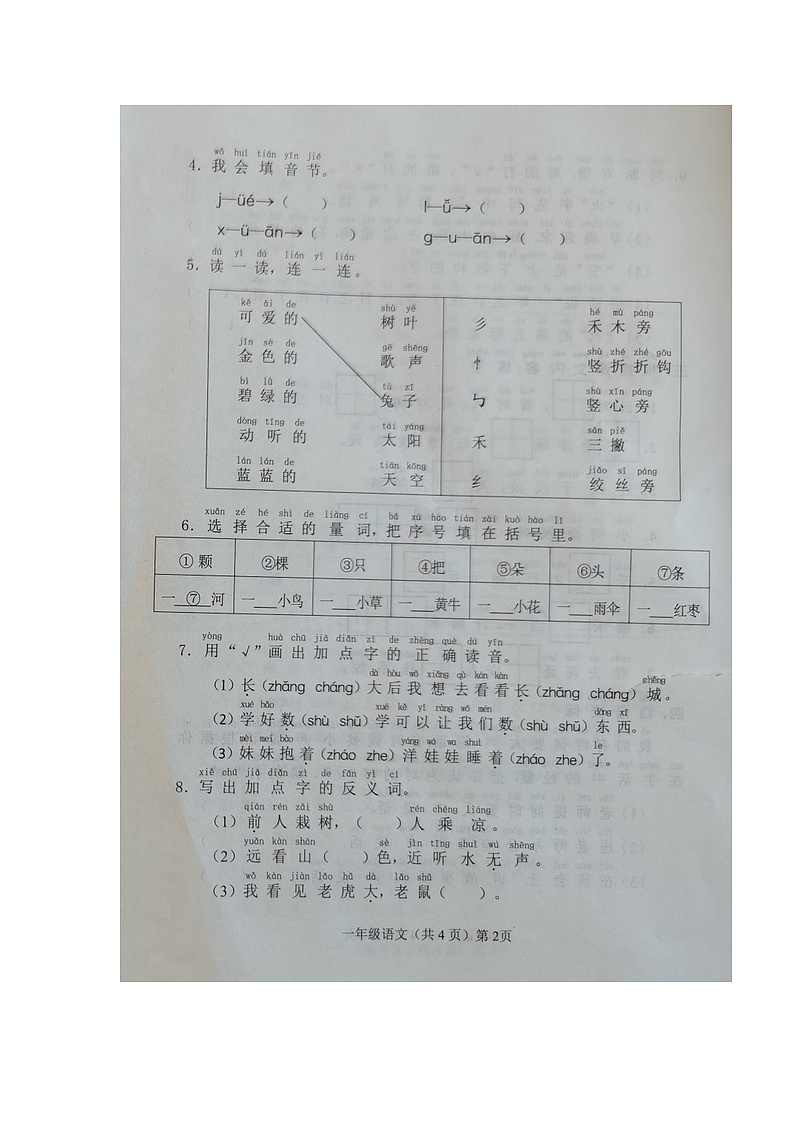 wǒ huì tián yīn jié
4. 我会填音节。
j—üé→（ ） l—ǚ→（ ）
x—ü—ān→（ ） g—u—ān→（ ）
dú yì dú lián yì lián
5. 读一读，连一连。
kě ài de shù yè hé mù páng
可爱的 树叶 彡 禾木旁
jīn sè de gē shēng shù zhé zhé gōu
金色的 歌声 忄 竖折折钩
bì lǜ de tù zǐ shù xīn páng
碧绿的 兔子 ㄣ 竖心旁
dòng tīng de tài yáng sān piě
动听的 太阳 禾 三撇
lán lán de tiān kōng jiǎo sī páng
蓝蓝的 天空 纟 绞丝旁
xuǎn zé hé shì de liàng cí bǎ xù hào tián zài kuò hào lǐ
6. 选择合适的量词，把序号填在括号里。
① 颗 ②棵 ③只 ④把 ⑤朵 ⑥头 ⑦条
一 ⑦ 河 一___小鸟 一___小草 一___黄牛 一___小花 一___雨伞 一___红枣
yòng huà chū jiā diǎn zì de zhèng què dú yīn
7. 用“√”画出加点字的正确读音。
dà hòu wǒ xiǎng qù kàn kàn chéng
（1）长（zhǎng cháng）大后我想去看看长（zhǎng cháng）城。
xué hǎo xué kě yǐ ràng wǒ men dōng xī
（2）学好数（shù shǔ）学可以让我们数（shù shǔ）东西。
mèi mei bào yáng wá wa shuì le
（3）妹妹抱着（zháo zhe）洋娃娃睡着（zháo zhe）了。
xiě chū jiā diǎn zì de fǎn yì cí
8. 写出加点字的反义词。
qián rén zāi shù rén chéng liáng
（1）前人栽树，（ ）人乘凉。
yuǎn kàn shān sè jìn tīng shuǐ wú shēng
（2）远看山（ ）色，近听水无声。
wǒ kàn jiàn lǎo hǔ dà lǎo shǔ
（3）我看见老虎大，老鼠（ ）。
一年级语文（共4页）第2页